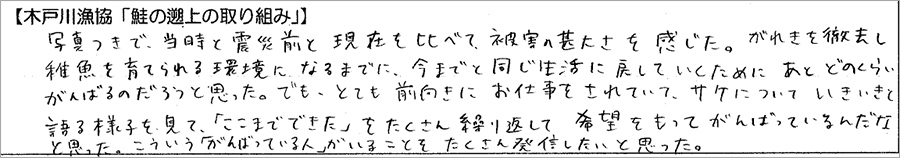 【木戸川漁協「鮭の遡上の取り組み」】
写真つきで、当時と震災前と現在を比べて、被害の甚大さを感じた。がれきを撤去し
稚魚を育てられる環境になるまでに、今までと同じ生活に戻していくためにあとどのくらい
がんばるのだろうと思った。でも、とても前向きにお仕事をされていて、サケについていきいきと
語る様子を見て、「ここまでできた」をたくさん繰り返して希望をもってがんばっているんだな
と思った。こういう「がんばっている人」がいることをたくさん発信したいと思った。